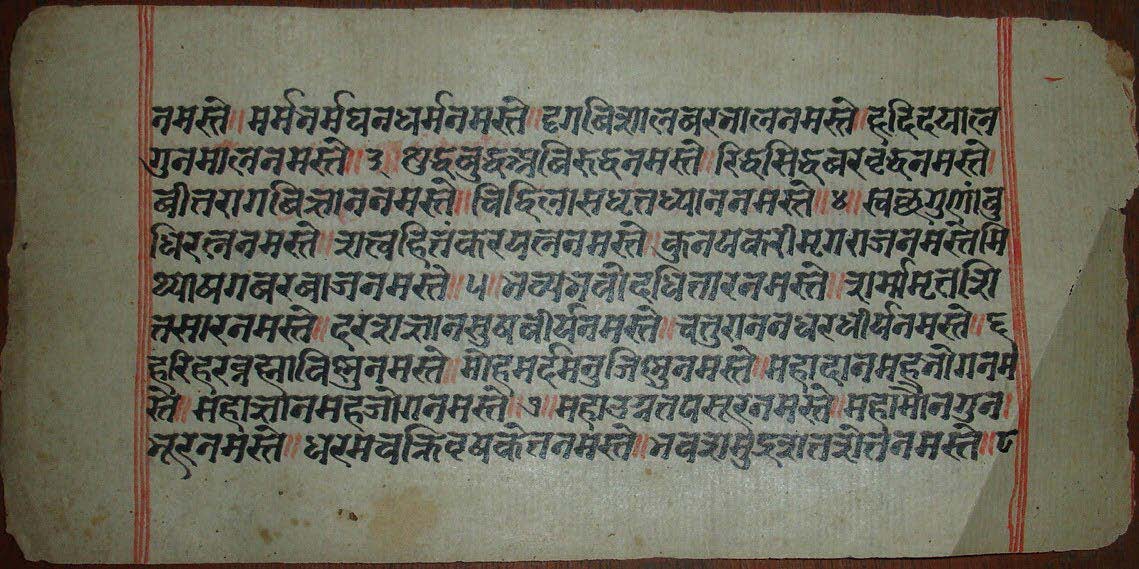 नमस्ते॥ मर्मनर्मघनधर्मनमस्ते॥ दृगविशालबरभालनमस्ते॥ हृदिदयाल
गुनमालनमस्ते॥३ शुद्धबुद्धअविरुद्धनमस्ते॥ रिद्धिसिद्धिवरवृद्धनमस्ते॥
वीतरागविज्ञाननमस्ते॥ चिद्विलासधृतध्याननमस्ते॥४॥ स्वच्छगुणांबु
धिरत्ननमस्ते॥ सत्वहितंकरयत्ननमस्ते॥ कुनयकरीमृगराजनमस्ते॥ मि
थ्याषगवरबाजनमस्ते॥५॥ भव्यभवोदधितारनमस्ते॥ शर्मामृतशि
तसारनमस्ते॥ दरशज्ञानसुषवीर्यनमस्ते॥ चतुराननधरधीर्यनमस्ते॥६
हरिहरब्रह्माविष्णुनमस्ते॥ मोहमर्दमनुजिष्णुनमस्ते॥ महादानमहभोगनम
स्ते॥ महाज्ञानमहजोगनमस्ते॥७॥ महाउग्रतपसूरनमस्ते॥ महामौनगुन
भूरनमस्ते॥ धरमचक्रिवृषकेतनमस्ते॥ भवसमुद्रशतसेतनमस्ते॥८